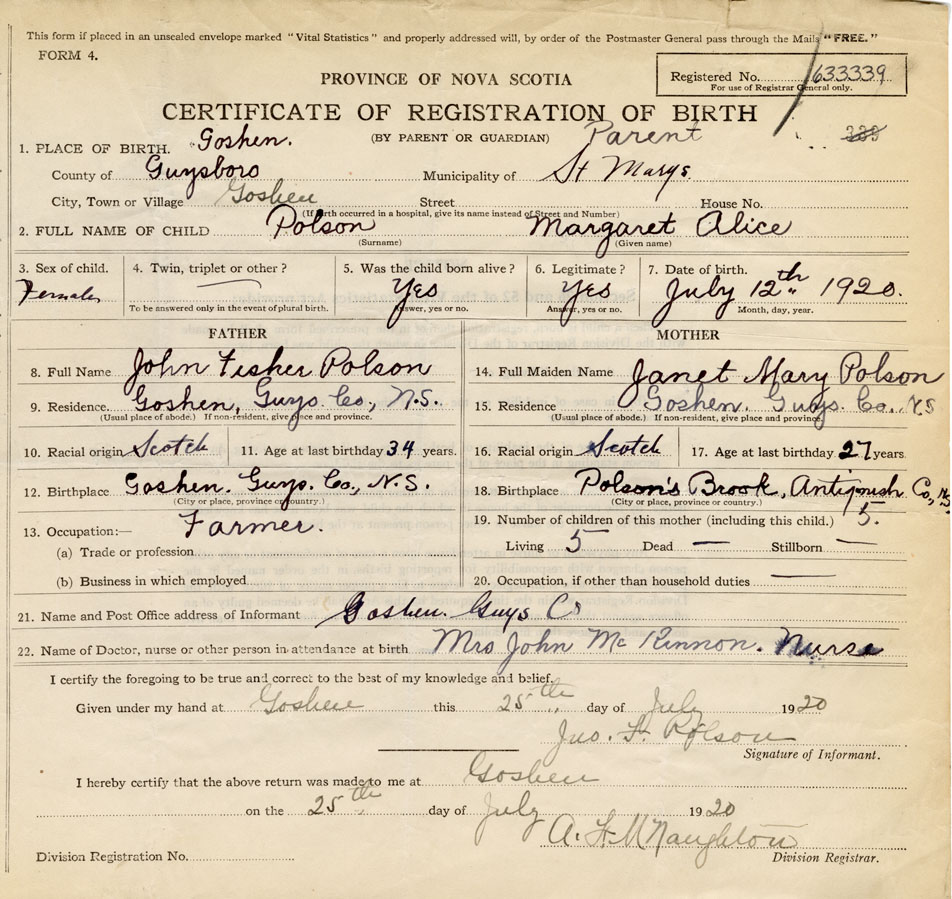 This form if placed in an unsealed envelope marked "Vital Statistics" and properly addressed will, by order of the Postmaster General pass through the Mails "FREE."
FORM 4.
PROVINCE OF NOVA SCOTIA
Registered No. 633339
For use of Registrar General only.
CERTIFICATE OF REGISTRATION OF BIRTH
(BY PARENT OR GUARDIAN) Parent
339
1. PLACE OF BIRTH. Goshen.
County of Guysboro Municipality of St Marys.
City, Town or Village Goshen Street House No.
(If birth occurred in a hospital, give its name instead of Street and Number)
2. FULL NAME OF CHILD Polson Margaret Alice
(Surname) (Given name)
3. Sex of child. 4. Twin, triplet or other? 5. Was the child born alive? 6. Legitimate? 7. Date of birth.
Female Yes Yes July 12th 1920.
To be answered only in the event of plural birth. Answer, yes or no. Answer, yes or no. Month, day, year.
FATHER MOTHER
8. Full Name John Fisher Polson 14. Full Maiden Name Janet Mary Polson
9. Residence Goshen, Guys. Co., N.S. 15. Residence Goshen. Guys. Co. N.S
(Usual place of abode.) If non-resident, give place and province. (Usual place of abode.) If non-resident, give place and province
10. Racial origin Scotch 11. Age at last birthday 34 years. 16. Racial origin Scotch 17. Age at last birthday 27 years.
12. Birthplace Goshen. Guys. Co., N.S. 18. Birthplace Polson's Brook, Antignish Co,
(City or place, province or country.) (City or place, province or country)
13. Occupation:— Farmer. 19. Number of children of this mother (including this child.) 5.
(a) Trade or profession Living 5 Dead — Stillborn —
(b) Business in which employed 20. Occupation, if other than household duties —
21. Name and Post Office address of Informant Goshen. Guys Co
22. Name of Doctor, nurse or other person in attendance at birth Mrs John McKinnon. Nurse
I certify the foregoing to be true and correct to the best of my knowledge and belief.
Given under my hand at Goshen this 25th day of July 1920
Jno. F. Polson
Signature of Informant.
I hereby certify that the above return was made to me at Goshen
on the 25th day of July 1920
A. F. McNaughton
Division Registration No. Division Registrar.